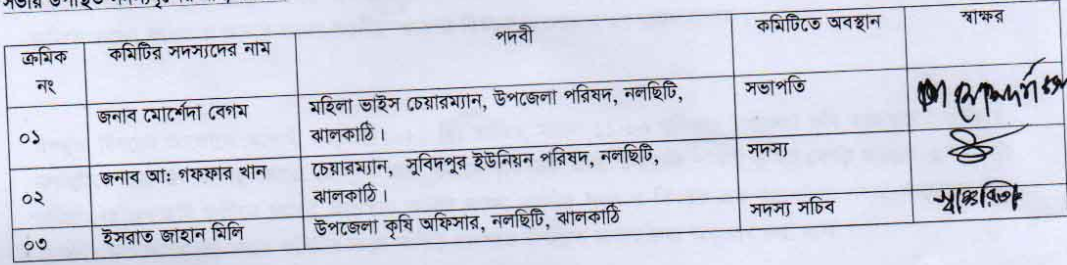 ক্রমিক নং কমিটির সদস্যদের নাম পদবী কমিটিতে অবস্থান স্বাক্ষর
০১ জনাব মোর্শেদা বেগম মহিলা ভাইস চেয়ারম্যান, উপজেলা পরিষদ, নলছিটি, ঝালকাঠি। সভাপতি
০২ জনাব আঃ গফফার খান চেয়ারম্যান, সুবিদপুর ইউনিয়ন পরিষদ, নলছিটি, ঝালকাঠি। সদস্য
০৩ ইসরাত জাহান মিলি উপজেলা কৃষি অফিসার, নলছিটি, ঝালকাঠি সদস্য সচিব স্বাক্ষরিত